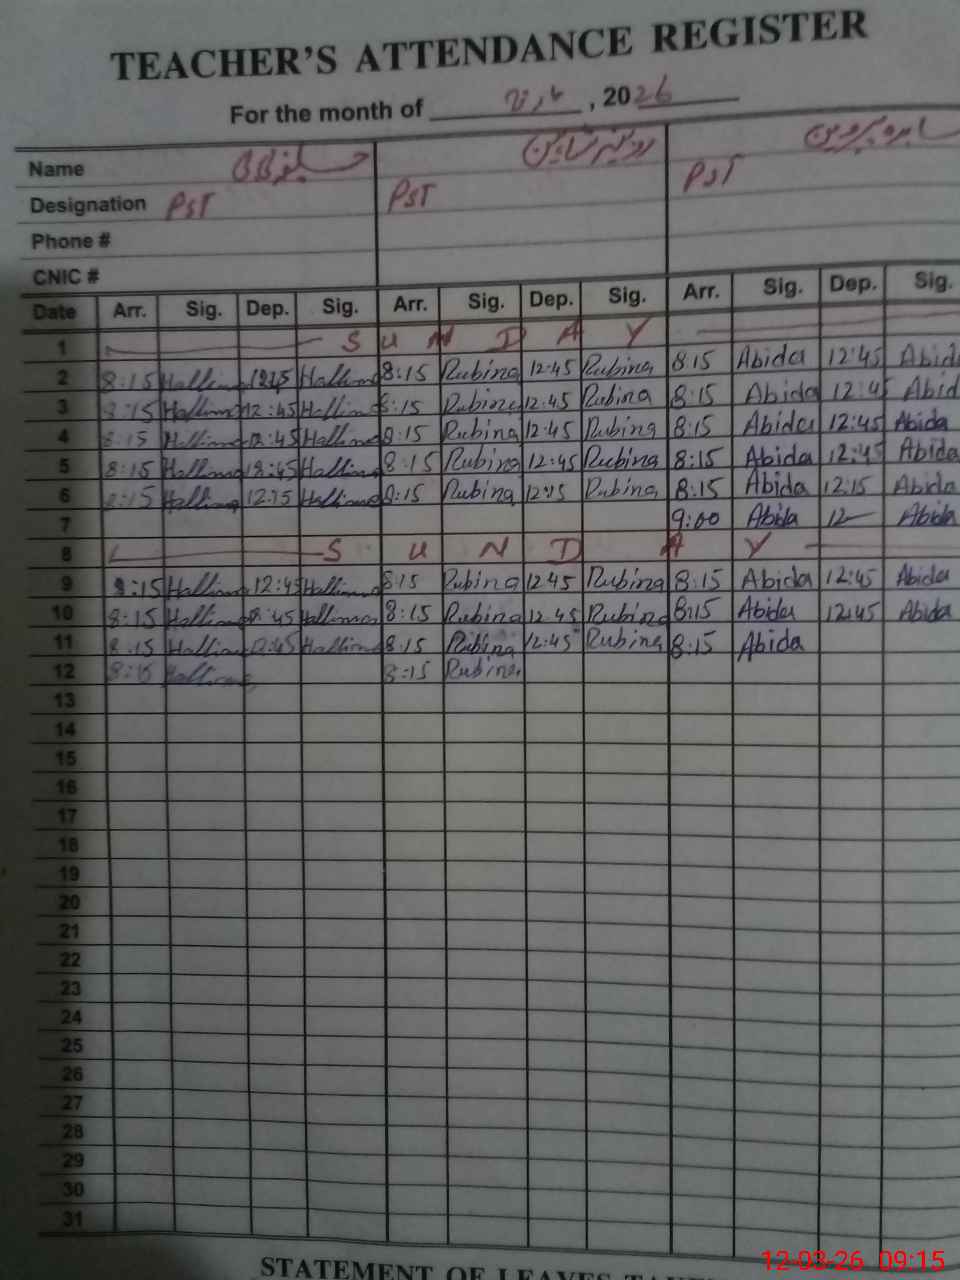 TEACHER'S ATTENDANCE REGISTER
For the month of مارچ , 2026
Name
Designation PST PST PST
Phone #
CNIC #
Date Arr. Sig. Dep. Sig. Arr. Sig. Dep. Sig. Arr. Sig. Dep. Sig.
1 SUNDAY
2 8:15 Hallima 12:45 Hallima 8:15 Rubina 12:45 Rubina 8:15 Abida 12:45 Abid
3 8:15 Hallima 12:45 Hallima 8:15 Rubina 12:45 Rubina 8:15 Abida 12:45 Abid
4 8:15 Hallima 12:45 Hallima 8:15 Rubina 12:45 Rubina 8:15 Abida 12:45 Abida
5 8:15 Hallima 12:45 Hallima 8:15 Rubina 12:45 Rubina 8:15 Abida 12:45 Abida
6 8:15 Hallima 12:15 Hallima 8:15 Rubina 12:15 Rubina 8:15 Abida 12:15 Abida
7 9:00 Abida 12 Abida
8 SUNDAY
9 8:15 Hallima 12:45 Hallima 8:15 Rubina 12:45 Rubina 8:15 Abida 12:45 Abida
10 8:15 Hallima 12:45 Hallima 8:15 Rubina 12:45 Rubina 8:15 Abida 12:45 Abida
11 8:15 Hallima 12:45 Hallima 8:15 Rubina 12:45 Rubina 8:15 Abida
12 8:15 Hallima 8:15 Rubina
13
14
15
16
17
18
19
20
21
22
23
24
25
26
27
28
29
30
31
STATEMENT OF LEAVES
12-03-26 09:15